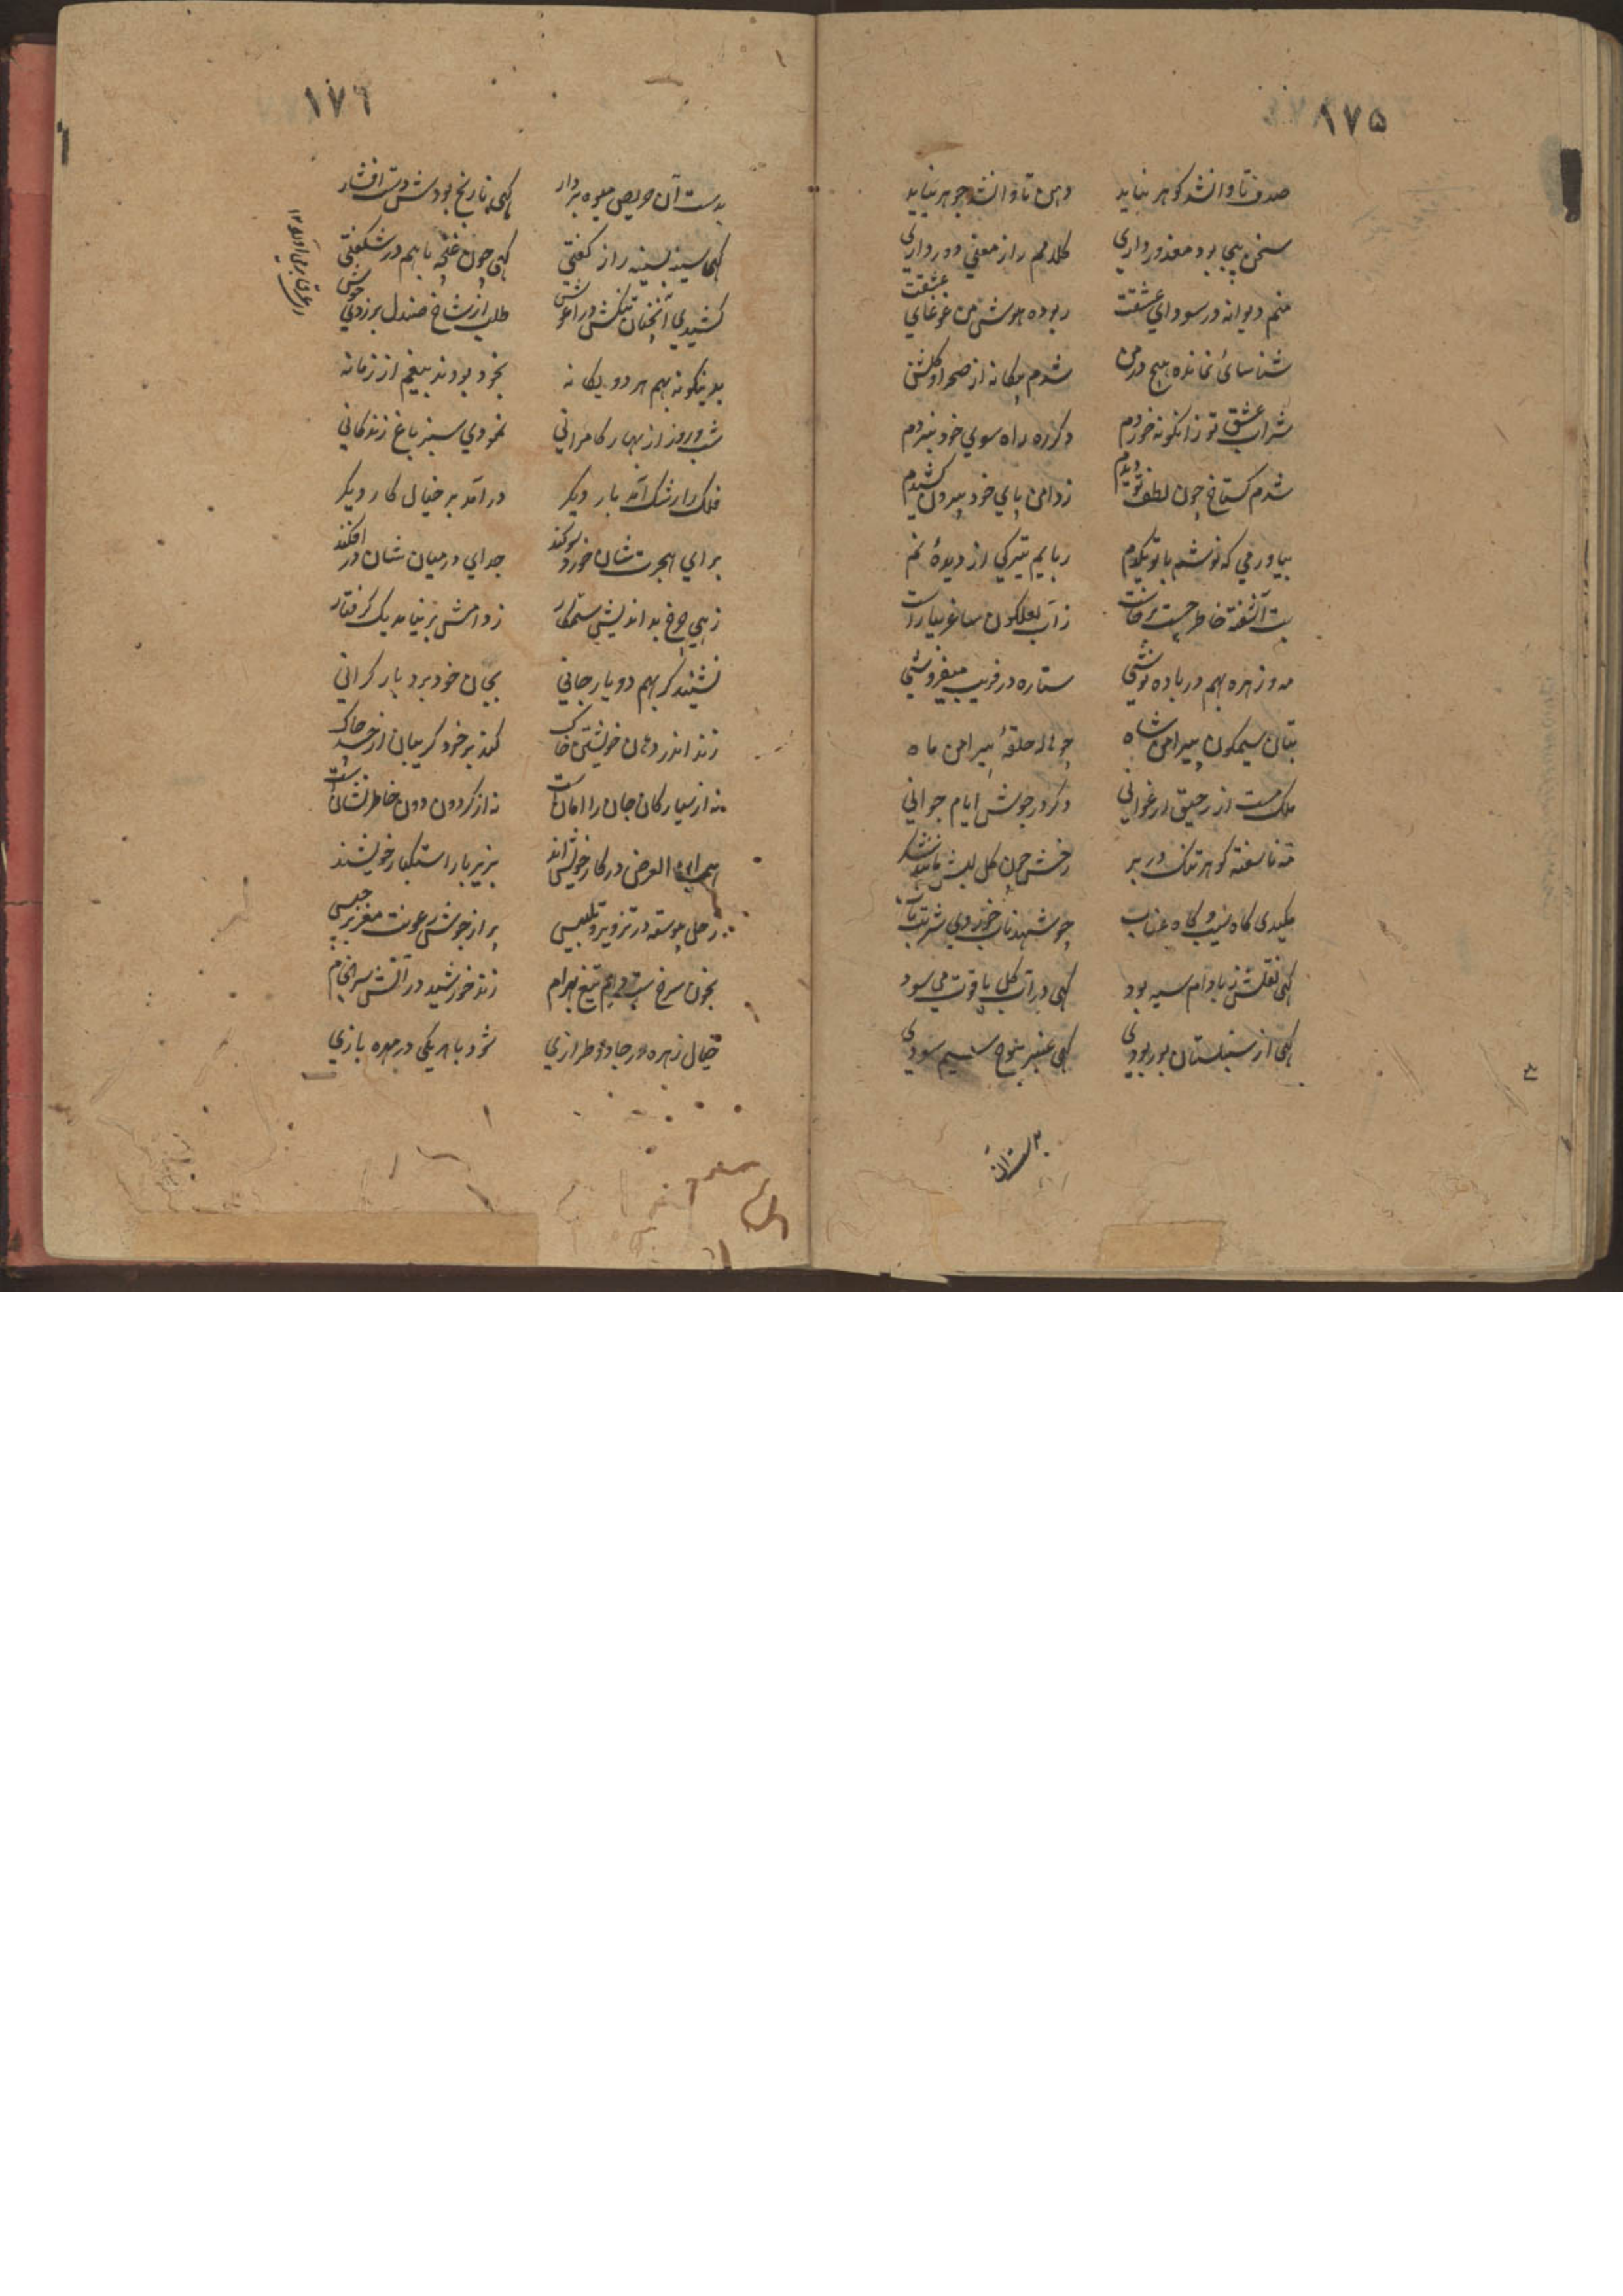 ١٧۵
صدف تا وا نشد کوهر نیاید دهن تا وا نشد جوهر نیاید
سخن بیجا بود معذور داری کلامم را ز معنی دور داری
منم دیوانه در سودای عشقت ربوده هوش من غوغای عشقت
شناسائ نمانده هیچ در من شدم بیکانه از صحرا و کلشن
شراب عشق تو زانکونه خوردم دکر ره راه سوی خود نبردم
شدم کستاخ چون لطف تو دیدم ز دامن پای خود بیرون کشیدم
بیاور می که نوشم با تو یکدم ربایم تیرکی از دیدۀ نم
بت آشفته خاطر جست برخاست ز آب لعلکون ساغر بیاراست
مه و زهره بهم در باده نوشی ستاره در فریب میفروشی
بتان سیمکون پیرامن شاه چو هاله حلقۀ پیرامن ماه
ملک مست از رحیق ارغوانی دکر در جوش ایام جوانی
مه ناسفته کوهر تنک در بر رخش چون کل لبش مانند شکر
مکیدی کاه سیب و کاه عناب چو شهد ناب خوردی شربت ناب
کهی نقلش ز بادام سیه بود کهی در آب کل یاقوت می سود
کهی از سنبلستان بو ربودی کهی عنبر بلوح سیم سودی
١٧٦
بدست آن حریص میوه بردار کهی نارنج بودش دست افشار
کهی سینه بسینه راز کفتی کهی چون غنچه با هم در شکفتی
کشیدی آنچنان تنکش در آغوش طلب از شاخ صندل بر زدی جوش
بدینکونه بهم هر دو یکانه بخود بودند بیغم از زمانه
شب و روز از بهار کامرانی نمودی سبز باغ زندکانی
فلک را رشک آمد بار دیکر در آمد بر خیال کار دیکر
برای هجرت شان خورد سوکند جدای در میان شان در افکند
زهی چرخ بد اندیش ستمکار ز دامش بر نیامد یک کرفتار
نشیند کر بهم دو یار جانی بجان خود برد بار کرانی
زند اندر دهان خویشتن خاک کند بر خود کریبان از حسد چاک
نه از سیارکان جان را امانست نه از کردون دون خاطر نشانست
همه ابناء الغرض در کار خویش اند بزیر بار استکبار خویشند
زحل پیوسته در تزویر و تلبیس پر از جوش رعونت مغز برجیس
بخون سرخ ست دایم تیغ بهرام زند خورشید در آتش سرانجام
خیال زهره در جادو طرازی شود با هر یکی در مهره بازی